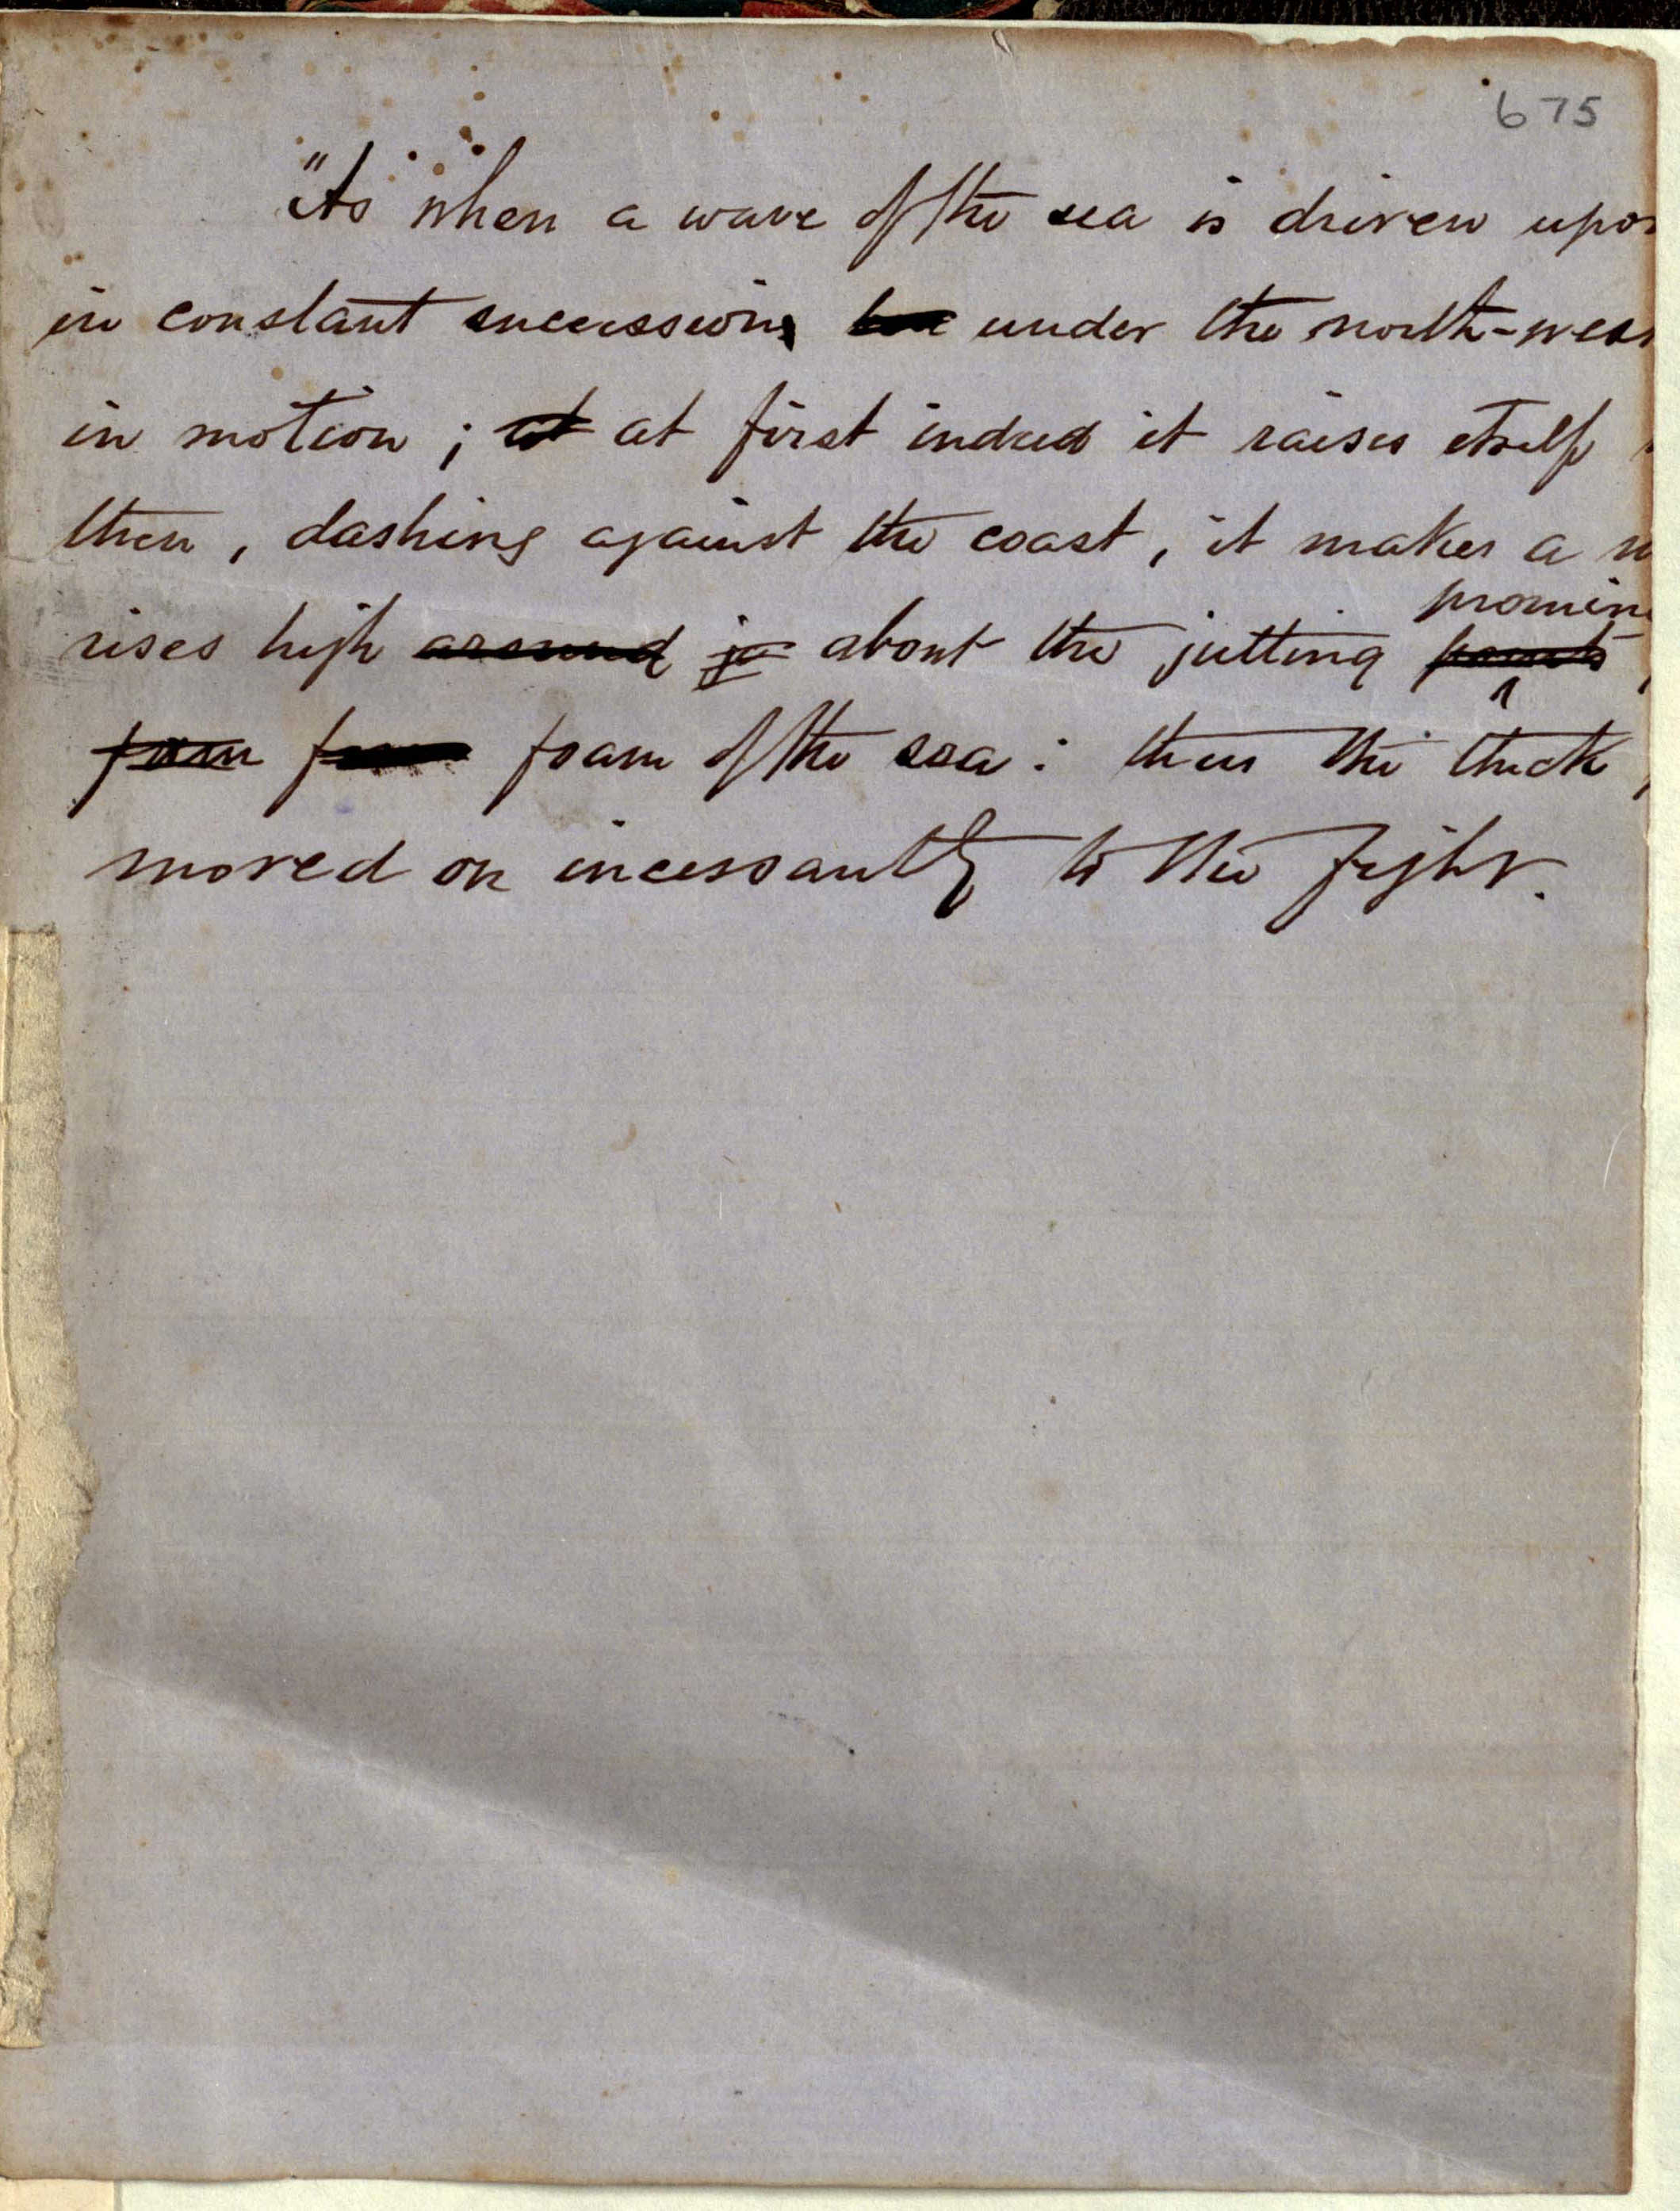 675
"As when a wave of the sea is driven upo
in constant succession, under the north-wes
in motion; at at first indeed it raises itself
then, dashing against the coast, it makes a
promin
rises high around ju about the jutting points
foam foam of the sea: thus the thick
moved on incessantly to the fight.